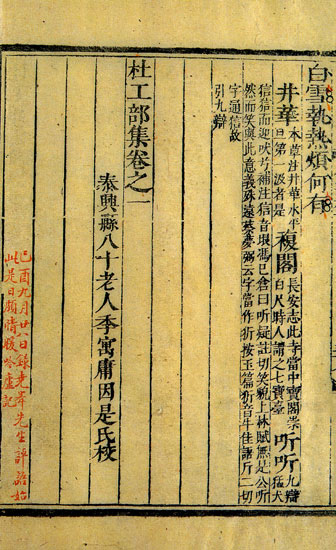 白雪執熱煩何有
井華 本草注井華水平
旦第一汲者是
複閣 長安志此寺當中寶閣崇
百尺時人謂之七寶臺
听听 九辯
猛犬
狺狺而迎吠考補注狺音垠馮已倉曰听疑謹切笑貌上林賦無是公听
然而笑與此意義殊遠蔡夢弼云字當作狺按玉篇狺音牛佳語斤二切
字通狺故
引九辯
杜工部集卷之一
泰興縣八十老人季寓庸因是氏校
己酉九月廿八日錄先生評語始
此是日頗晴暖吟廬記